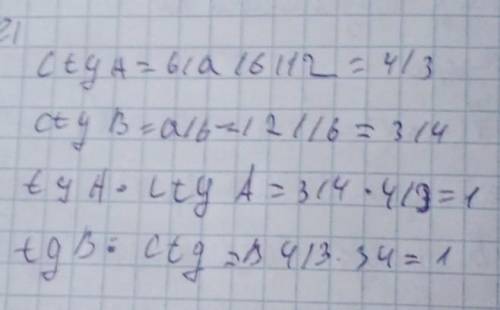 21
ctg A = б/a 16/12 = 4/3
ctg B = a/b = 12/16 = 3/4
tg A · ctg A = 3/4 · 4/3 = 1
tg B · ctg = B 4/3 · 34 = 1